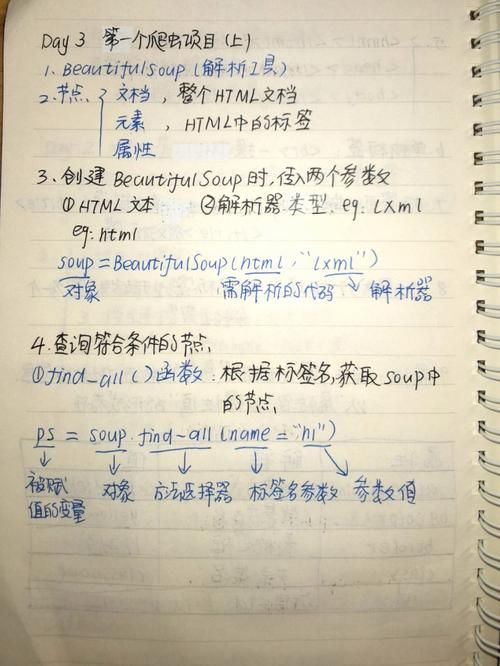 Day 3 第一个爬虫项目(上)
1. BeautifulSoup (解析工具)
2. 节点 { 文档, 整个HTML文档
元素, HTML中的标签
属性
3. 创建 BeautifulSoup 时, 传入两个参数
① HTML 文本 ②解析器类型. eg: lxml
eg: html
soup = BeautifulSoup (html, "lxml")
对象 需解析的代码 解析器
4. 查询符合条件的节点
① find_all ( ) 函数: 根据标签名, 获取 soup 中
的节点.
ps = soup. find-all (name = "h1")
被赋 对象 方法选择器 标签名参数 参数值
值的变量